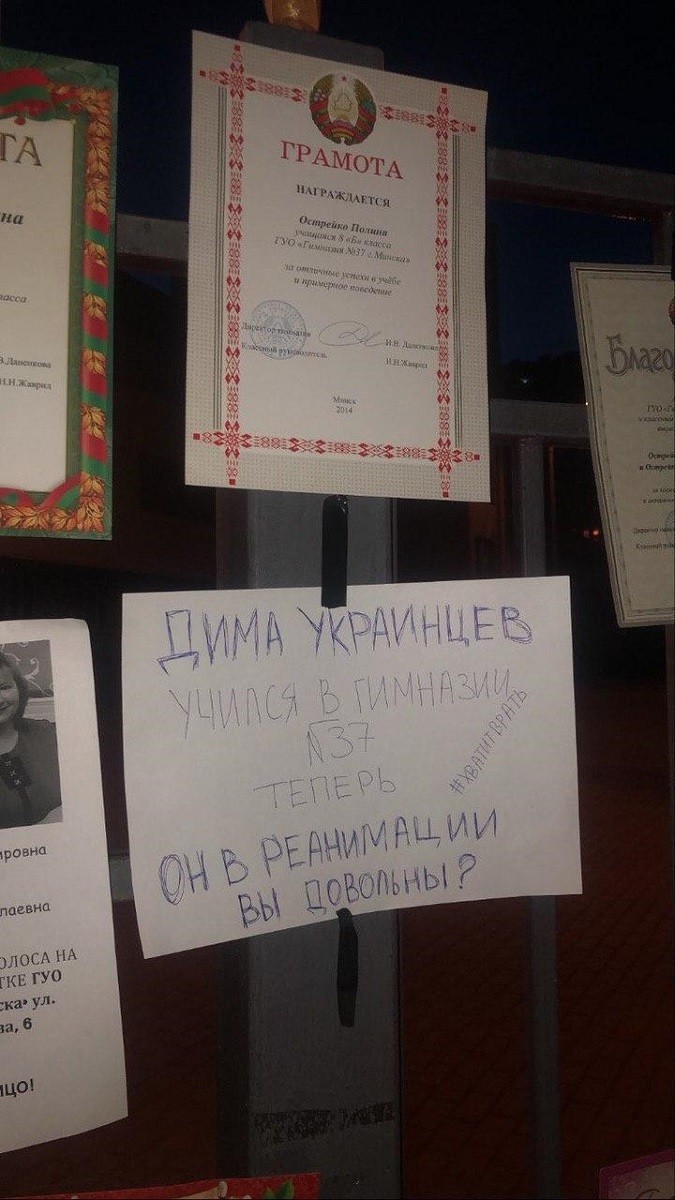 ТА
на
ласса
В.Даненкова
Н.Н.Жаврид
ГРАМОТА
НАГРАЖДАЕТСЯ
Острейко Полина
учащаяся 8 «Б» класса
ГУО «Гимназия №37 г.Минска»
за отличные успехи в учёбе
и примерное поведение
Директор гимназии
Классный руководитель
Н.Н.Жаврид
Минск
2014
Благо
ДИМА УКРАИНЦЕВ
УЧИЛСЯ В ГИМНАЗИИ
№37
ТЕПЕРЬ
#ХВАТИТВРАТЬ
ОН В РЕАНИМАЦИИ
ВЫ ДОВОЛЬНЫ?
ировна
лаевна
ОЛОСА НА
ТКЕ ГУО
ска» ул.
ва, 6
ИЦО!